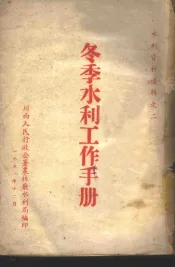 水利資料彙輯之二
冬季水利工作手册
川西人民行政公署農林廳水利局編印
一九五一年十二月